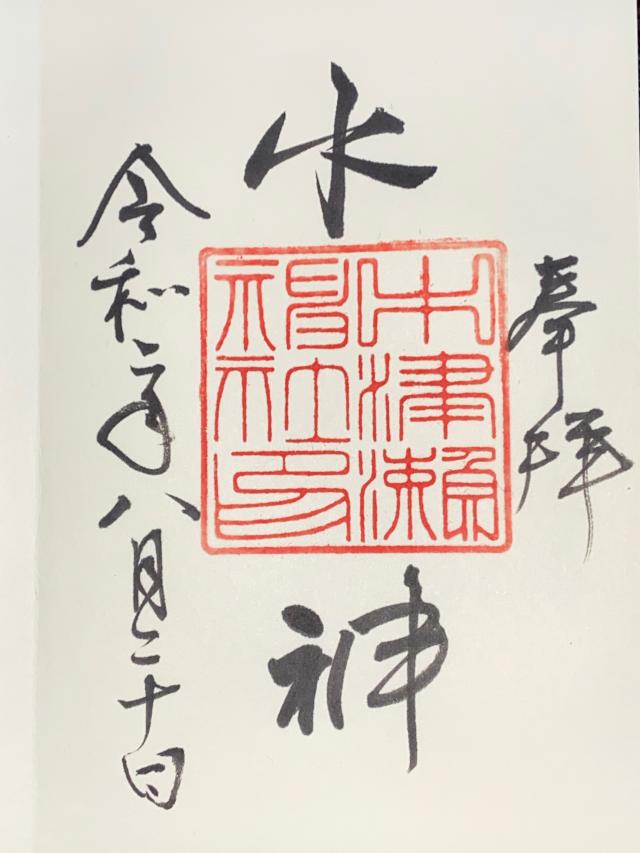 奉拝
水神
中津瀬
神社印
令和二年八月二十日